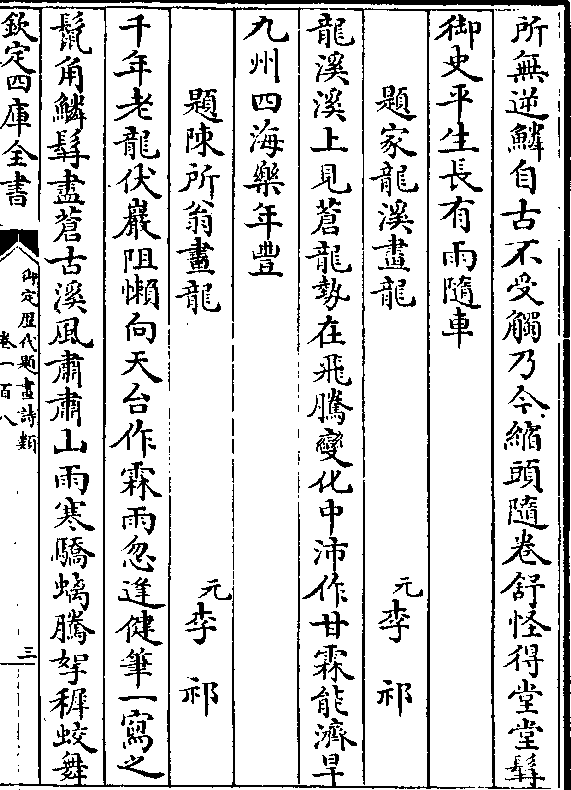 所無逆鱗自古不受觸乃今縮頭隨卷舒怪得堂堂髯
御史平生長有雨隨車
題家龍溪畫龍 元李祁
龍溪溪上見蒼龍勢在飛騰變化中沛作甘霖能濟旱
九州四海樂年豐
題陳所翁畫龍 元李祁
千年老龍伏巖阻懶向天台作霖雨忽逢健筆一寫之
鬣角鱗髯盡蒼古溪風肅肅山雨寒驕螭騰挐稺蛟舞
欽定四庫全書
御定歷代題畫詩類
卷一百八
三